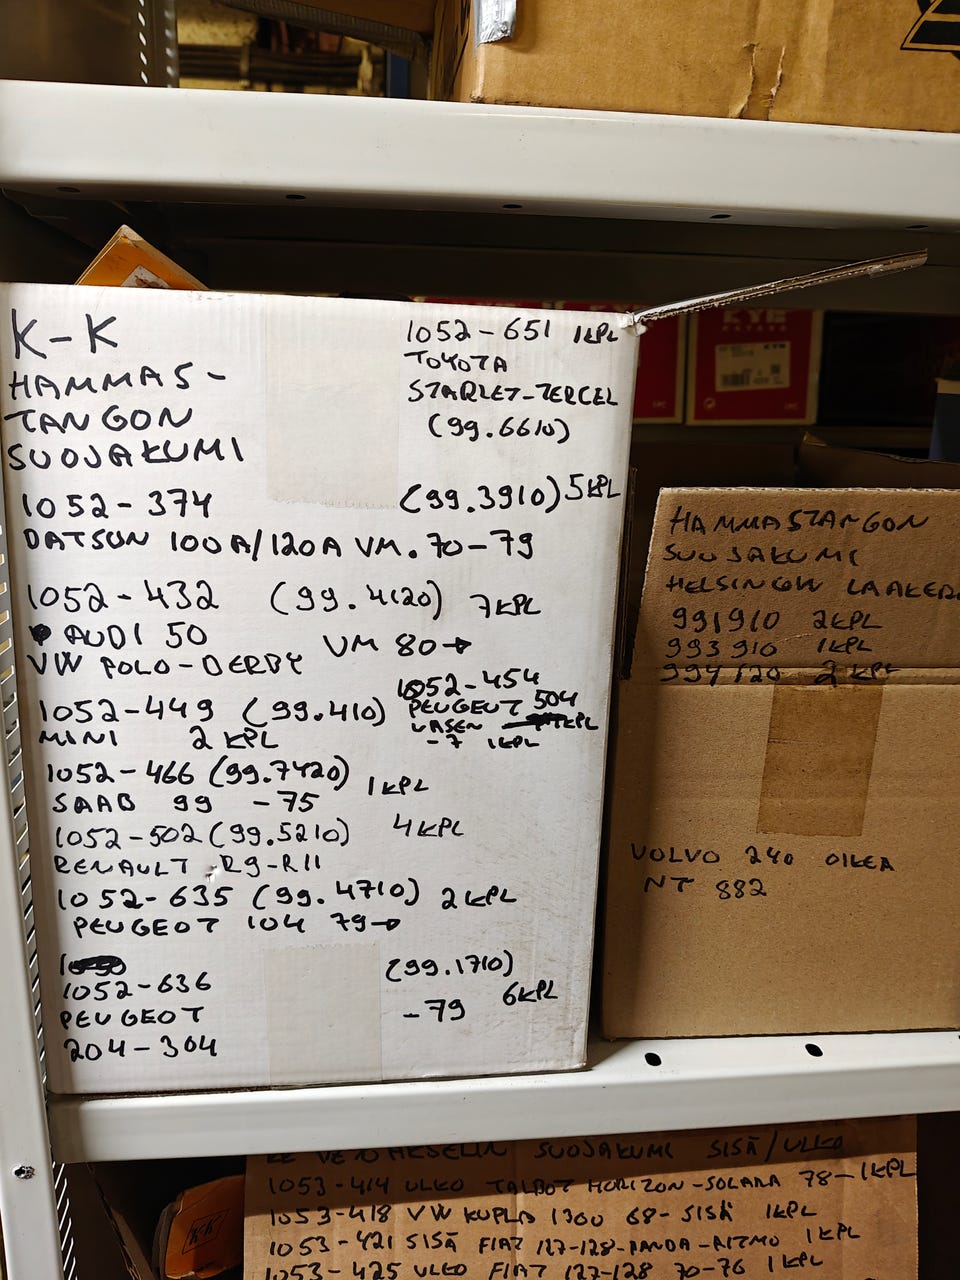 K-K
HAMMAS-
TANGON
SUOJAKUMI
1052-651 1KPL
TOYOTA
STARLET-TERCEL
(99.6610)
1052-374 (99.3910) 5KPL
DATSUN 100A/120A VM. 70-79
1052-432 (99.4120) 7KPL
AUDI 50 VM 80→
VW POLO-DERBY
1052-449 (99.410)
MINI 2 KPL
1052-454
PEUGEOT 504
VASEN 1KPL
-7 1KPL
1052-466 (99.7420) 1KPL
SAAB 99 -75
1052-502 (99.5210) 4KPL
RENAULT R9-R11
1052-635 (99.4710) 2KPL
PEUGEOT 104 79→
1052-636 (99.1710)
PEUGEOT -79 6KPL
204-304
KYB
HAMMASTANGON
SUOJAKUMI
HELSINGIN LAAKERI
991910 2KPL
993910 1KPL
994120 2KPL
VOLVO 240 OIKEA
NT 882
VETOAKSELIN SUOJAKUMI SISÄ/ULKO
1053-414 ULKO TALBOT HORIZON-SOLARA 78- 1KPL
1053-418 VW KUPLA 1300 68- SISÄ 1KPL
1053-421 SISÄ FIAT 127-128-PANDA-RITMO 1KPL
1053-425 ULKO FIAT 127-128 70-76 1KPL
K-K